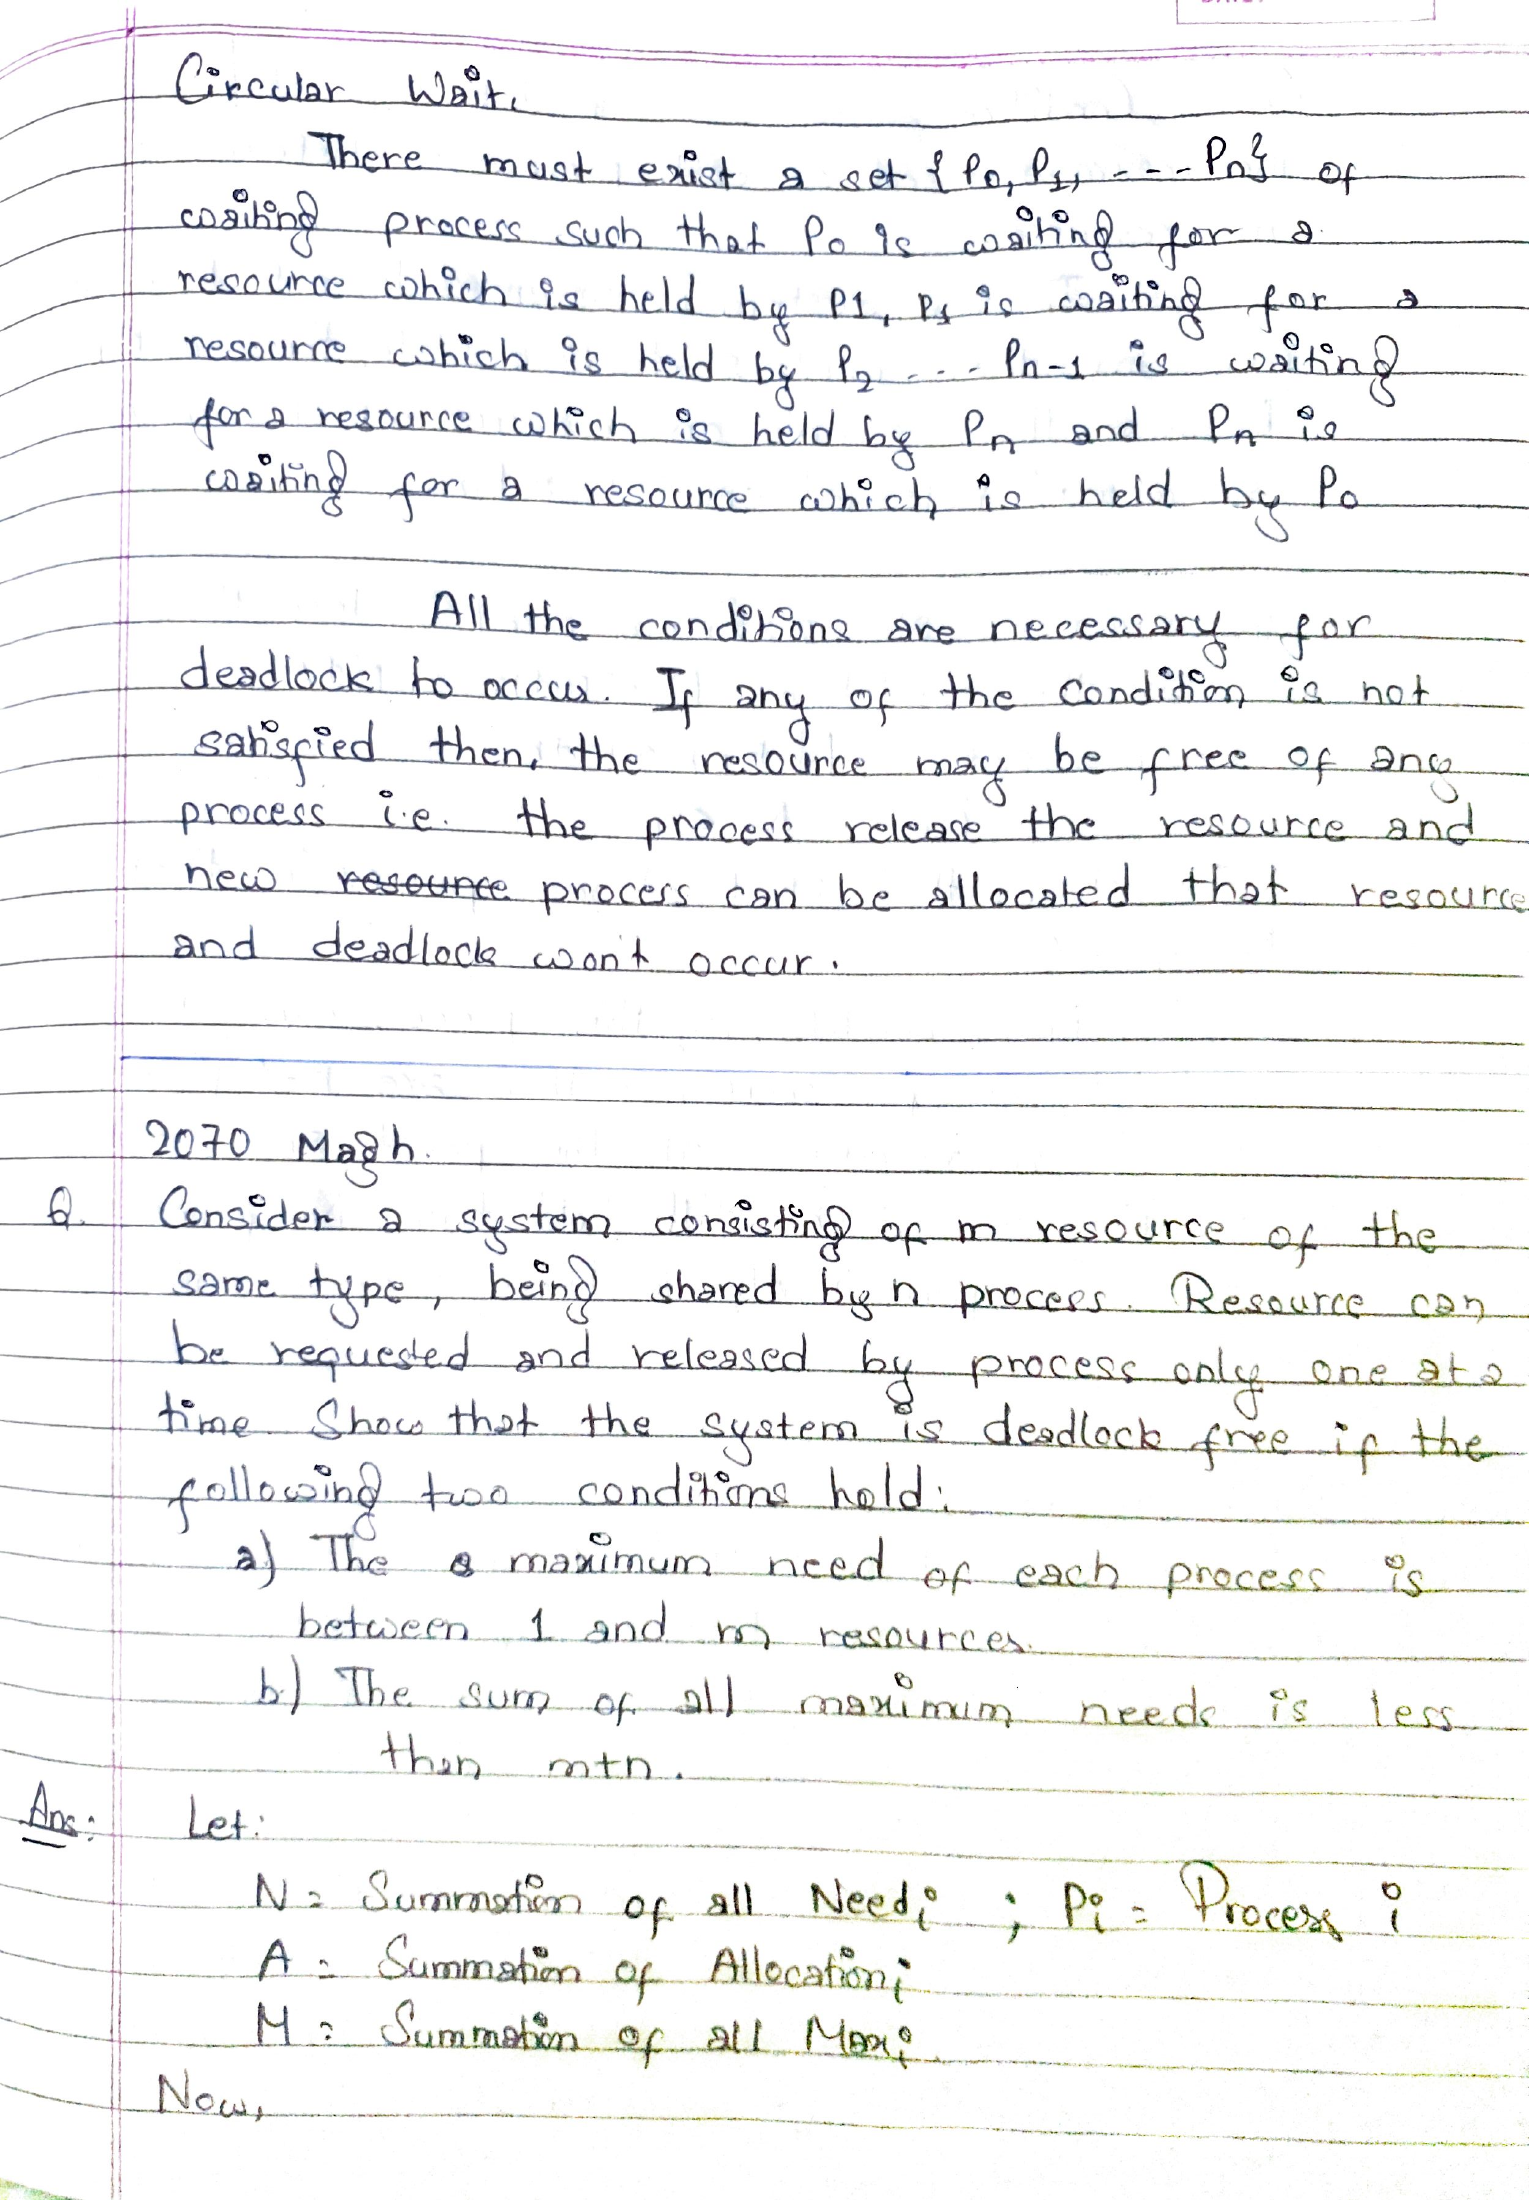 Circular Wait.
There must exist a set { P0, P1, - - - Pn} of
waiting process such that P0 is waiting for a
resource which is held by P1, P1 is waiting for a
resource which is held by P2 - - - Pn-1 is waiting
for a resource which is held by Pn and Pn is
waiting for a resource which is held by P0
All the conditions are necessary for
deadlock to occur. If any of the condition is not
satisfied then, the resource may be free of any
process i.e. the process release the resource and
new resource process can be allocated that resource
and deadlock won't occur.
2070 Magh.
Q. Consider a system consisting of m resource of the
same type, being shared by n process. Resource can
be requested and released by process only one at a
time. Show that the system is deadlock free if the
following two conditions hold:
a) The maximum need of each process is
between 1 and m resources.
b) The sum of all maximum needs is less
than m+n.
Ans: Let:
N = Summation of all Needi ; Pi = Process i
A = Summation of Allocationi
M = Summation of all Maxi
Now,